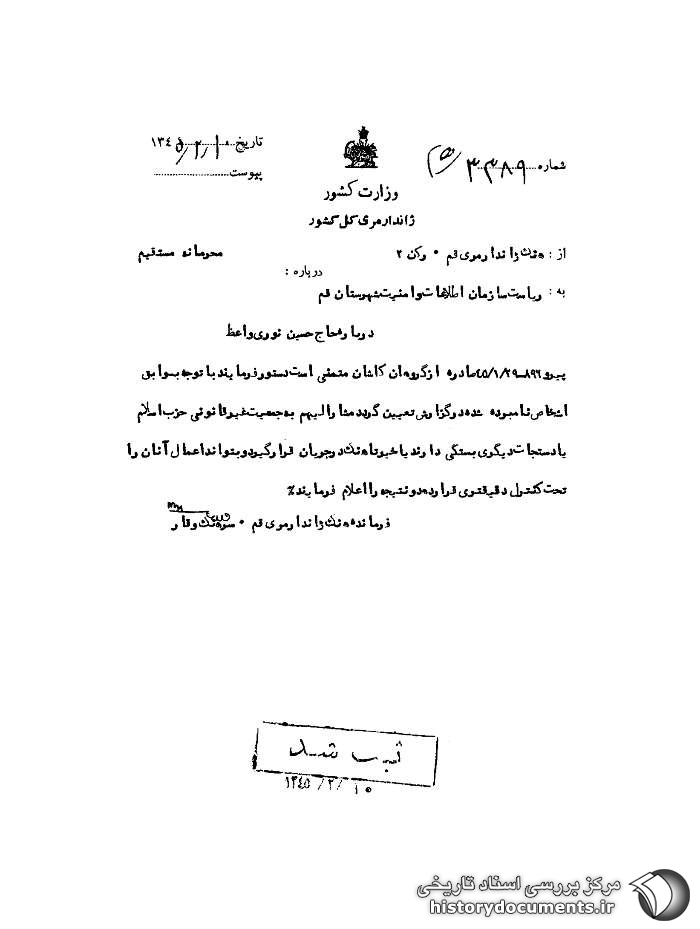 شماره ۳۳۸۹
تاریخ ۱۳۴۵/۲/۱۰
پیوست
وزارت کشور
ژاندارمری کل کشور
از: هنگ ژاندارمری قم • رکن ۲
محرمانه مستقیم
درباره:
به: ریاست سازمان اطلاعات و امنیت شهرستان قم
درباره حاج حسین نوری واعظ
پیرو ۸۹۶ـ۴۵/۱/۲۹ صادره از گروهان کاشان متمنی است دستور فرمایند با توجه بسوابق
اشخاص نامبرده شده در گزارش تعیین گردد مشارالیهم به جمعیت غیر قانونی حزب اسلام
یا دستجات دیگری بستگی دارند یا خیر تا هنگ در جریان قرار گیرد و بتواند اعمال آنان را
تحت کنترل دقیقتری قرار دهد و نتیجه را اعلام فرمایند٪
فرمانده هنگ ژاندارمری قم • سرهنگ وقار
ثبت شد
۱۳۴۵/۲/۱۰
مرکز بررسی اسناد تاریخی
historydocuments.ir